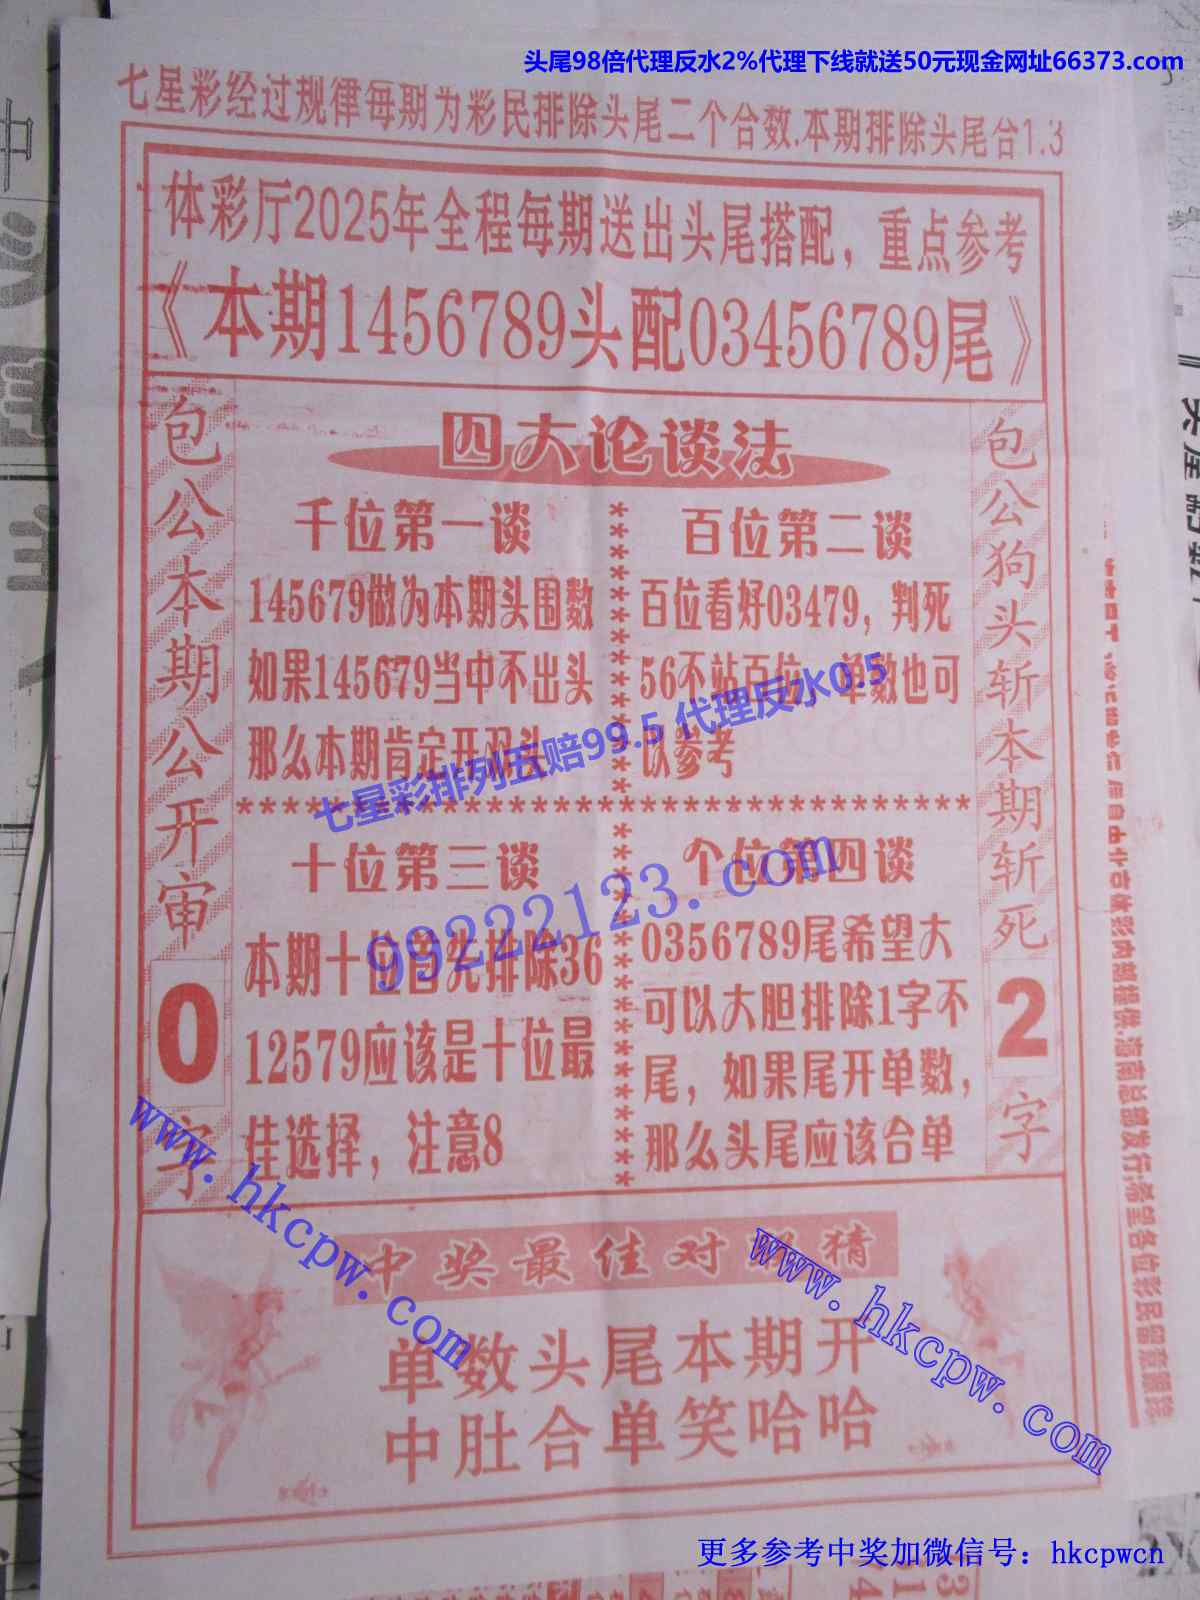 头尾98倍代理反水2%代理下线就送50元现金网址66373.com
七星彩经过规律每期为彩民排除头尾二个合数.本期排除头尾合1.3
体彩厅2025年全程每期送出头尾搭配，重点参考
《本期1456789头配03456789尾》
包公本期公开审
0
字
四大论谈法
千位第一谈
145679做为本期头围数
如果145679当中不出头
那么本期肯定开双头
百位第二谈
百位看好03479，判死
56不站百位，单数也可
以参考
七星彩排列五赔99.5 代理反水0.5
************************************
十位第三谈
本期十位首先排除36
12579应该是十位最
佳选择，注意8
99222123.com
个位第四谈
0356789尾希望大
可以大胆排除1字不
尾，如果尾开单数，
那么头尾应该合单
包公狗头斩本期斩死
2
字
www.hkcpw.com
www.hkcpw.com
中奖最佳对 猜
单数头尾本期开
中肚合单笑哈哈
更多参考中奖加微信号：hkcpwcn